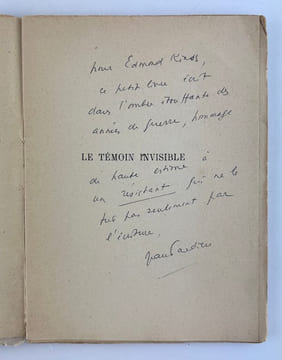 pour Edmond Kinds,
ce petit livre écrit
dans l'ombre étouffante des
années de guerre, hommage
LE TÉMOIN INVISIBLE
de haute estime à
un résistant qui ne le
fut pas seulement par
l'écriture.
Jean Tardieu